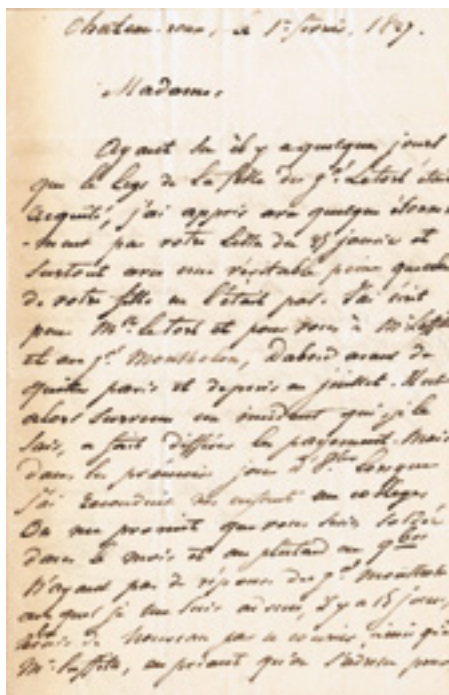 Chateau-roux, le 1er février, 1827.
Madame,
Ayant su il y a quelques jours
que le legs de la fille du Gal Letort était
acquitté, j'ai appris avec quelque étonne-
-ment par votre lettre du 25 janvier et
surtout avec une véritable peine que celui
de votre fille ne l'était pas. J'ai écrit
pour Mlle Letort et pour vous à Mr Laffitte
et au Gal Montholon, d'abord avant de
quitter paris et depuis en juillet. Il est
alors survenu un incident qui, je le
sais, a fait différer les payements. Mais
dans les premiers jours d' lorsque
j'ai reconduit mes enfants au collège
On me promit que vous seriez soldée
dans le mois et au plutard en 9bre
N'ayant pas de réponse du Gal Montholon
auquel je me suis adressé, il y a 15 jours,
de nouveau par ce courrier, ainsi qu'à
Mr Laffitte, en priant qu'on pour